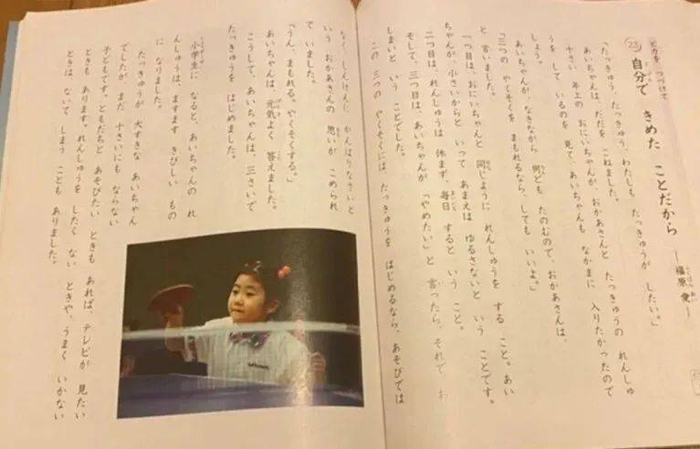 ピカを つづけて
23 自分で きめた ことだから
―福原 愛―
「たっきゅう、たっきゅう、わたしも たっきゅうが したい。」
あいちゃんは、だだを こねました。
十さい 年上の おにいちゃんが、おかあさんと たっきゅうの れんしゅ
うを して いるのを 見て、あいちゃんも なかまに 入りたかったので
しょう。
あいちゃんが、なきながら 何ども たのむので、おかあさんは、
「三つの やくそくを まもれるなら、しても いいよ。」
と 言いました。
一つ目は、おにいちゃんと 同じように れんしゅうを する こと。あい
ちゃんが、小さいからと いって あまえは ゆるさないと いう ことです。
二つ目は、れんしゅうは 休まず、毎日 すると いう こと。
そして、三つ目は、あいちゃんが 「やめたい」と 言ったら、それで お
しまいと いう ことでした。
この 三つの やくそくには、たっきゅうを はじめるなら、あそびでは
なく、しんけんに がんばりなさいと
いう おかあさんの 思いが こめられ
て いました。
「うん、まもれる。やくそくする。」
あいちゃんは、元気よく 答えました。
こうして、あいちゃんは、三さいで
たっきゅうを はじめました。
小学生に なると、あいちゃんの れ
んしゅうは、ますます きびしい もの
に なりました。
たっきゅうが 大すきな あいちゃん
でしたが、まだ 十さいにも ならない
子どもです。ともだちと あそびたい ときも あれば、テレビが 見たい
ときも あります。れんしゅうを したく ない ときや、うまく いかない
ときは、ないて しまう ことも ありました。